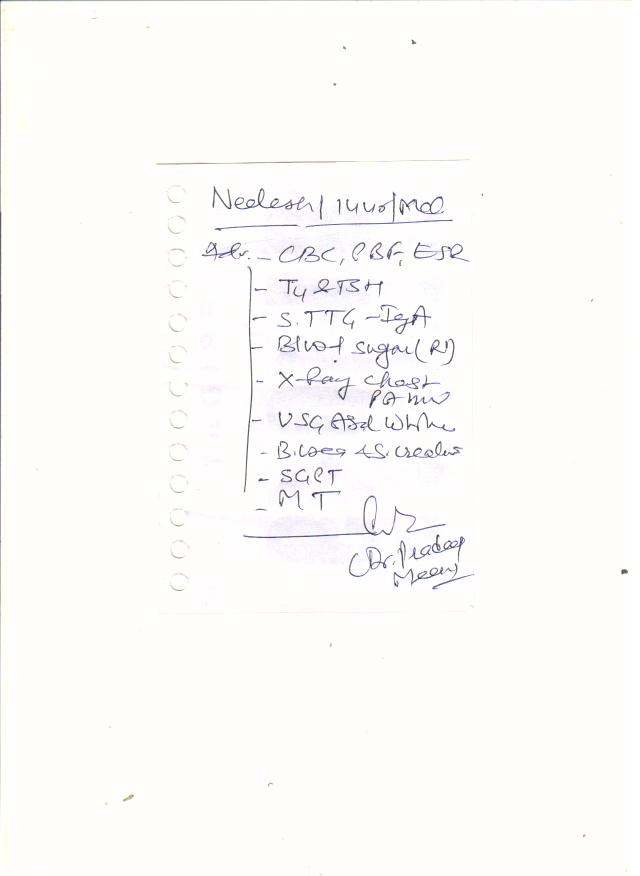 Neelesh / 14 yo / Mch
Adv. - CBC, PBF, ESR
- T4 & TSH
- S. TTG - IgA
- Blood sugar (R)
- X-Ray chest
PA view
- USG Abd Whole
- B. Urea & S. creatin
- SGPT
- MT
(Dr. Pradeep